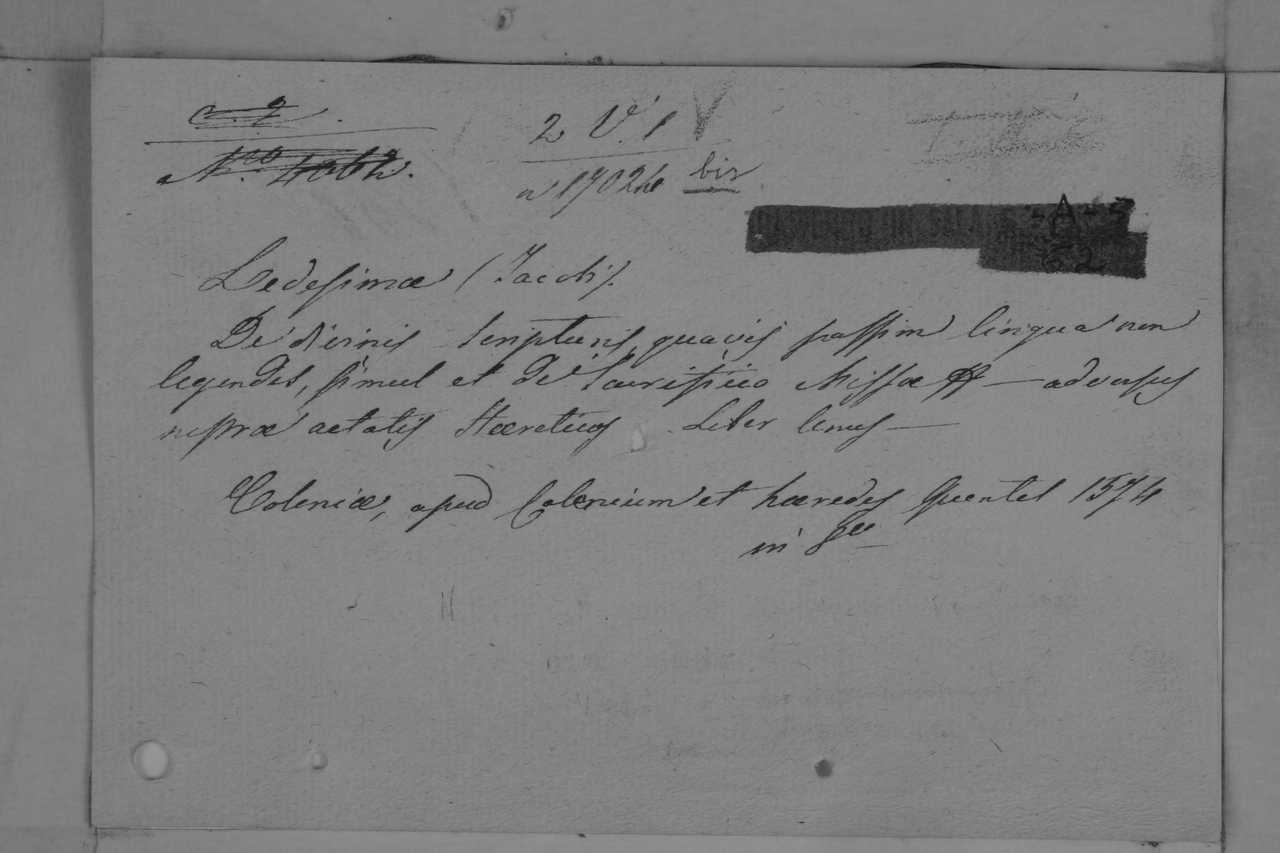 2 V. 1
n 17024 bis
-A-5
Ledesimæ (Jacobi).
De divinis Scripturis, quavis passim lingua non
legendis, simul et de Sacrificio Missæ — adversus
nostræ aetatis Hæreticos Liber Unus —
Coloniæ, apud Colenium et hæredes Quentel 1574
in 8vo